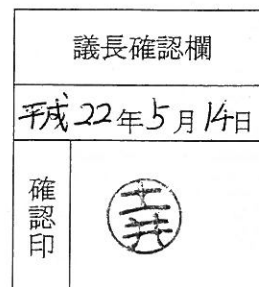 議長確認欄
平成22年5月14日
確認印
土井